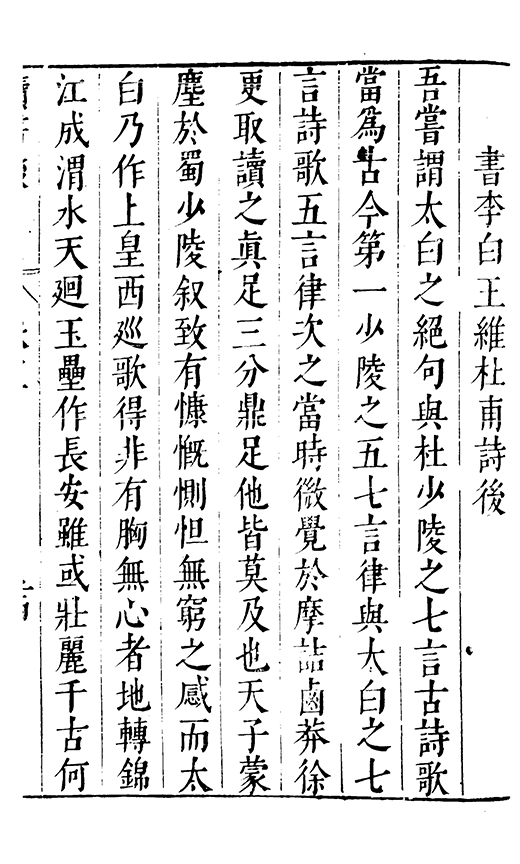 書李白王維杜甫詩後
吾嘗謂太白之絕句與杜少陵之七言古詩歌
當爲古今第一少陵之五七言律與太白之七
言詩歌五言律次之當時微覺於摩詰鹵莽徐
更取讀之眞足三分鼎足他皆莫及也天子蒙
塵於蜀少陵叙致有慷慨惻怛無窮之感而太
白乃作上皇西巡歌得非有胸無心者地轉錦
江成渭水天廻玉壘作長安雖或壯麗千古何